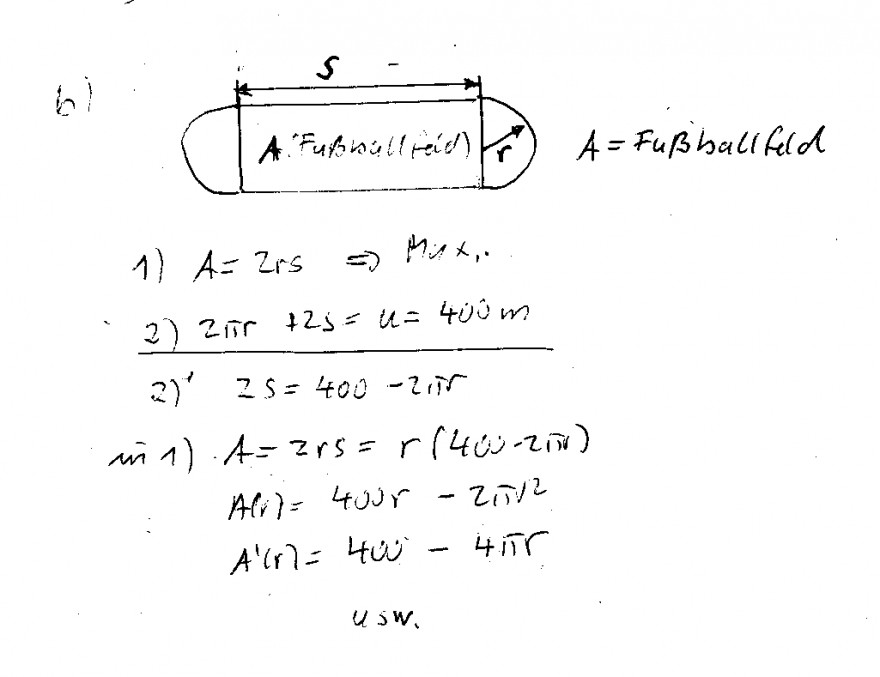 b)
S
A (Fußballfeld)
r
A = Fußballfeld
1) A = 2rs ⇒ Max.
2) 2πr + 2s = u = 400 m
2)' 2s = 400 - 2πr
in 1) A = 2rs = r (400 - 2πr)
A(r) = 400r - 2πr²
A'(r) = 400 - 4πr
usw.